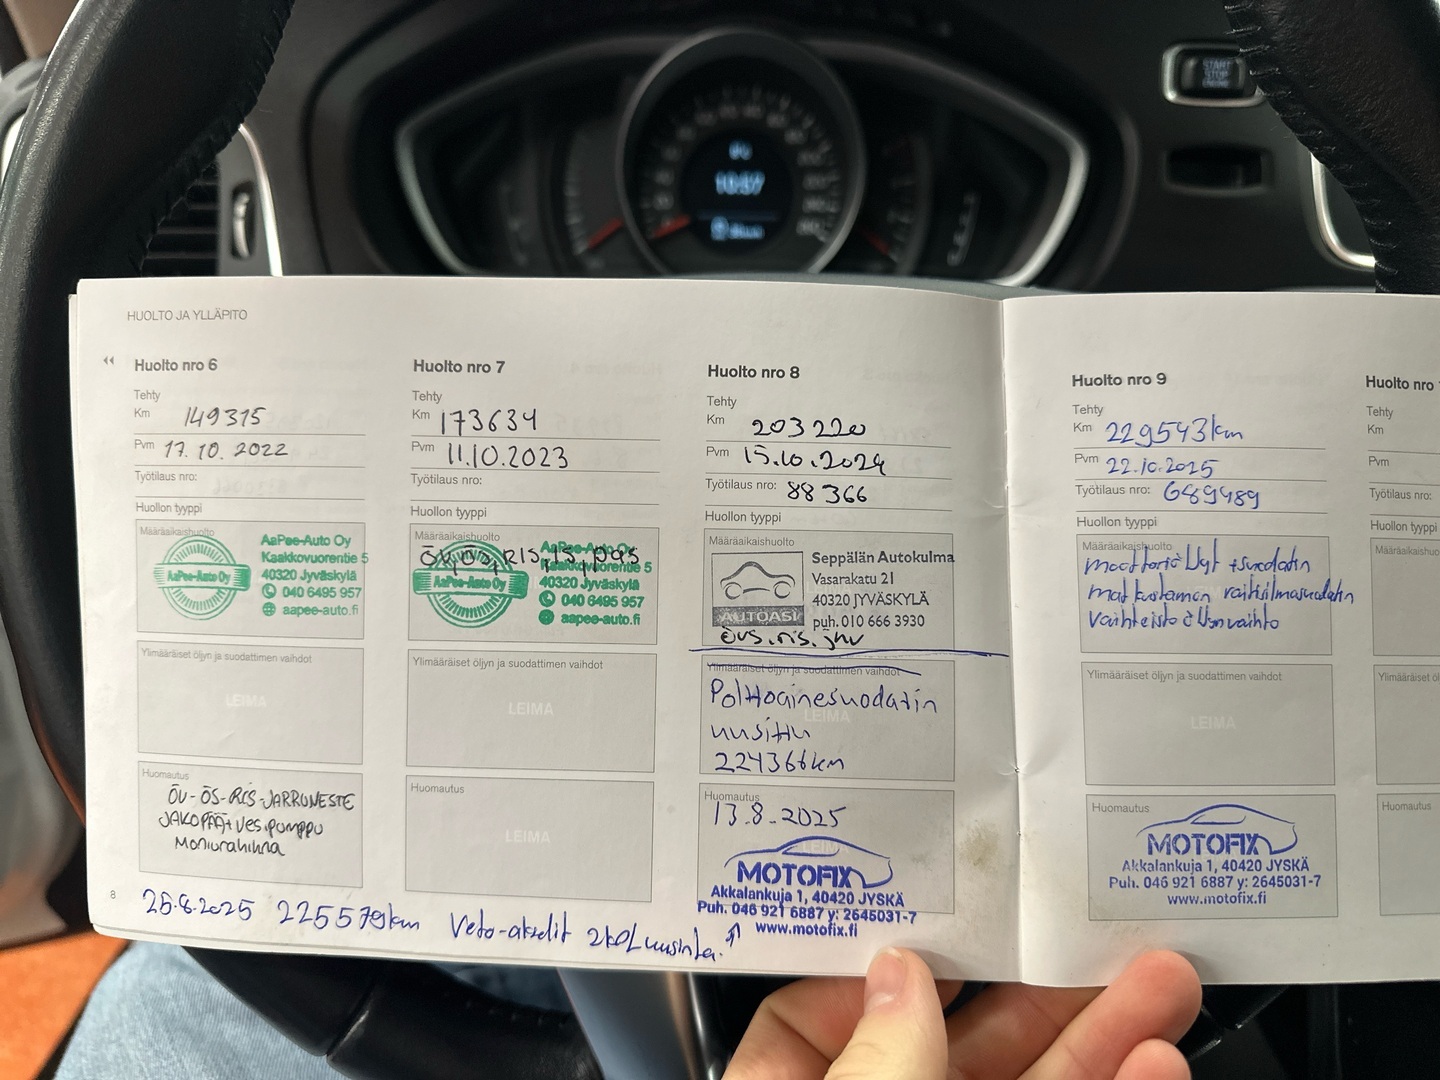 START
STOP
ENGINE
10:57
HUOLTO JA YLLÄPITO
Huolto nro 6
Tehty
Km 149315
Pvm 17.10.2022
Työtilaus nro:
Huollon tyyppi
Määräaikaishuolto
AaPee-Auto Oy
AaPee-Auto Oy
Kaakkovuorentie 5
40320 Jyväskylä
040 6495 957
aapee-auto.fi
Ylimääräiset öljyn ja suodattimen vaihdot
LEIMA
Huomautus
ÖV-ÖS-RIS-JARRUNESTE
JAKOPÄÄ+vesipumppu
Moniurahihna
8
Huolto nro 7
Tehty
Km 173634
Pvm 11.10.2023
Työtilaus nro:
Huollon tyyppi
Määräaikaishuolto
AaPee-Auto Oy
AaPee-Auto Oy
Kaakkovuorentie 5
40320 Jyväskylä
040 6495 957
aapee-auto.fi
Ylimääräiset öljyn ja suodattimen vaihdot
LEIMA
Huomautus
LEIMA
Huolto nro 8
Tehty
Km 203220
Pvm 15.10.2024
Työtilaus nro: 88366
Huollon tyyppi
Määräaikaishuolto
AUTOASI
Seppälän Autokulma
Vasarakatu 21
40320 JYVÄSKYLÄ
puh. 010 666 3930
Ylimääräiset öljyn ja suodattimen vaihdot
LEIMA
Polttoainesuodatin
uusittu
224366km
Huomautus
13.8.2025
LEIMA
MOTOFIX
Akkalankuja 1, 40420 JYSKÄ
Puh. 046 921 6887 y: 2645031-7
www.motofix.fi
225579km Veto-akselit 2kpl uusinta.
Huolto nro 9
Tehty
Km 229543km
Pvm 22.10.2025
Työtilaus nro: 689489
Huollon tyyppi
Määräaikaishuolto
moottoriöljyt +suodatin
matkustamon raitisilmasuodatin
vaihteistoöljynvaihto
Ylimääräiset öljyn ja suodattimen vaihdot
LEIMA
Huomautus
MOTOFIX
Akkalankuja 1, 40420 JYSKÄ
Puh. 046 921 6887 y: 2645031-7
www.motofix.fi
Huolto nro
Tehty
Km
Pvm
Työtilaus nro:
Huollon tyyppi
Huomautus